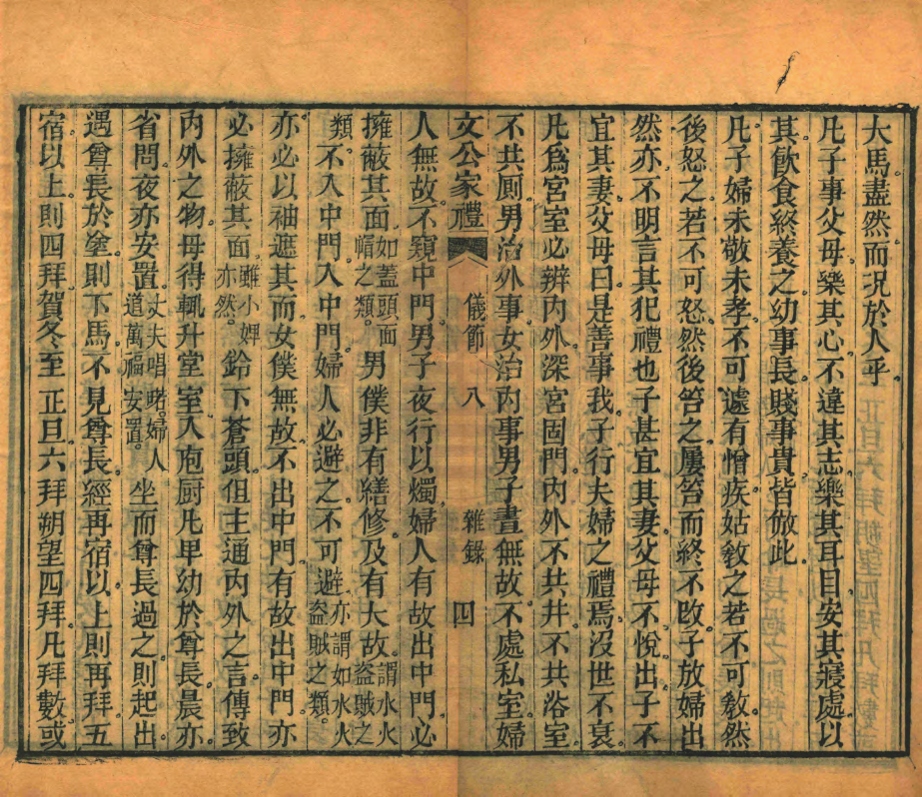 大馬盡然而况於人乎
凡子事父母樂其心不違其志樂其耳目安其寢處以
其飲食終養之幼事長賤事貴皆倣此
凡子婦未敬未孝不可遽有憎疾姑敎之若不可敎然
後怒之若不可怒然後笞之屢笞而終不改子放婦出
然亦不明言其犯禮也子甚宜其妻父母不悅出子不
宜其妻父母曰是善事我子行夫婦之禮焉沒世不衰
凡爲宮室必辨内外深宮固門内外不共井不共浴室
不共厠男治外事女治内事男子晝無故不處私室婦
文公家禮 儀節 八 雜錄 四
人無故不窺中門男子夜行以燭婦人有故出中門必
擁蔽其面如蓋頭面帽之類男僕非有繕修及有大故謂水火盜賊之
類不入中門入中門婦人必避之不可避亦謂如水火盜賊之類
亦必以袖遮其而女僕無故不出中門有故出中門亦
必擁蔽其面雖小婢亦然鈴下蒼頭但主通内外之言傳致
内外之物毋得輒升堂室入庖厨凡卑幼於尊長晨亦
省問夜亦安置丈夫唱喏婦人道萬福安置坐而尊長過之則起出
遇尊長於塗則下馬不見尊長經再宿以上則再拜五
宿以上則四拜賀冬至正旦六拜朔望四拜凡拜數或